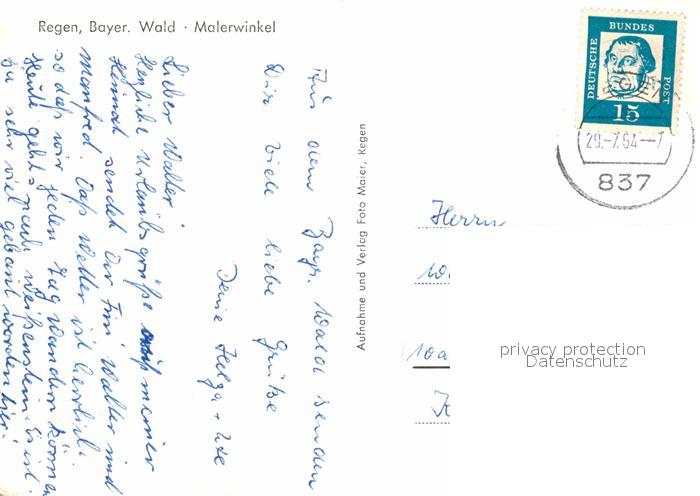 Regen, Bayer. Wald · Malerwinkel
DEUTSCHE
BUNDES
POST
15
29.-7.64-7
837
Lieber Walter!
Herzliche Urlaubsgrüße aus meiner
Heimat sendet Dir Walter und
Manfred. Das Wetter ist herrlich
so daß wir jeden Tag wandern können
Heute geht's nach Weißenstein. Es ist
ja sehr viel gebaut worden hier.
Aus dem Bayr. Wald senden
Dir viele liebe Grüße
Deine Helga + Ute
Aufnahme und Verlag Foto Maier, Regen
Herrn
W.
privacy protection
Datenschutz